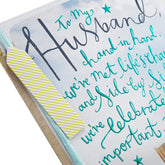 to My
Husband
hand in hand
we've met life's cha
and side by s
we've celebrat
importants